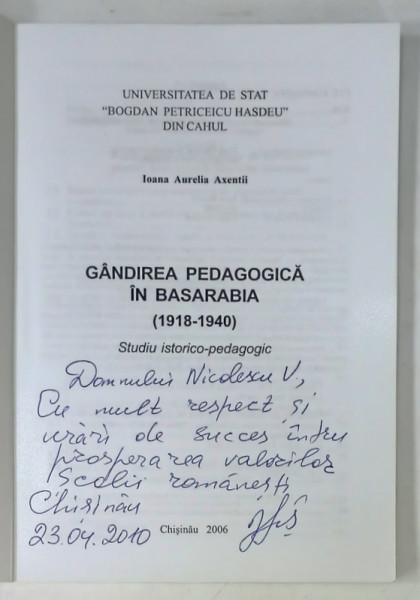 UNIVERSITATEA DE STAT
"BOGDAN PETRICEICU HASDEU"
DIN CAHUL
Ioana Aurelia Axentii
GÂNDIREA PEDAGOGICĂ
ÎN BASARABIA
(1918-1940)
Studiu istorico-pedagogic
Domnului Nicolescu V.,
Cu mult respect și
urări de succes întru
prosperarea valorilor
Școlii românești
Chișinău
23.04.2010
Chișinău 2006